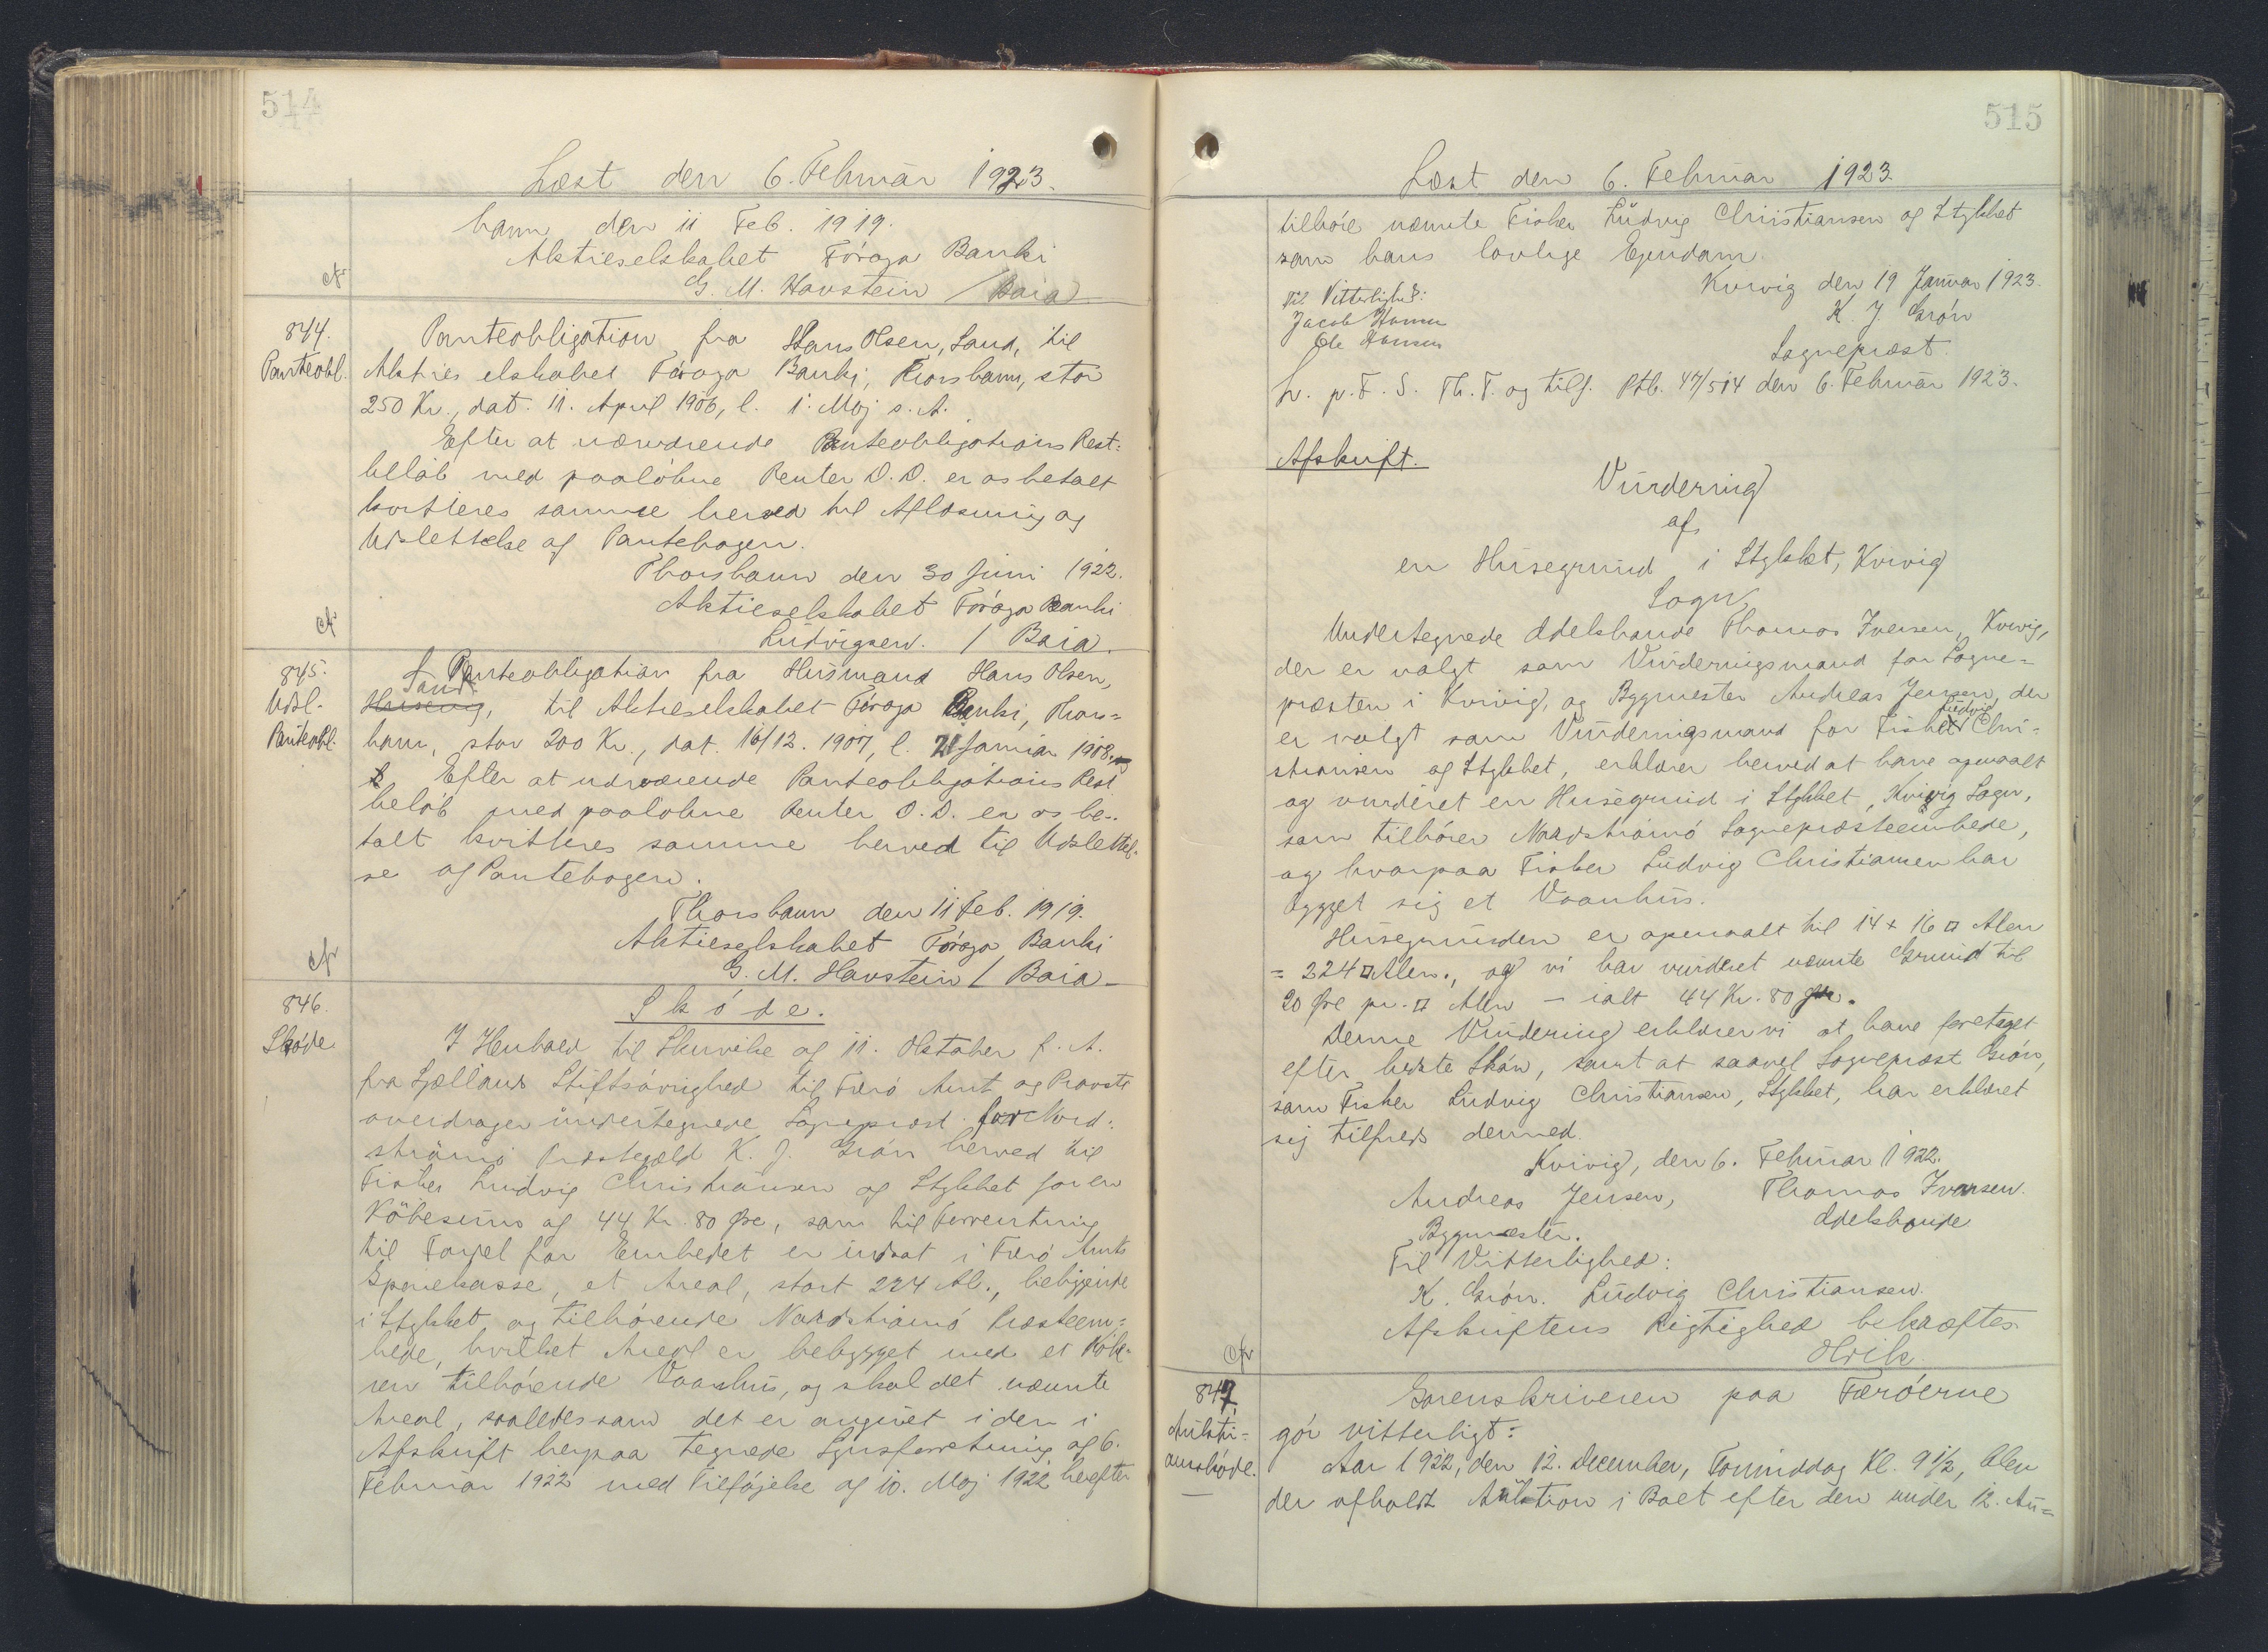 514
Læst den 6. Februar 1923.
havn den 11 Feb. 1919.
Aktieselskabet Føroya Banki
G. M. Havstein / Baia
cfr
844.
Panteobl.
Panteobligation fra Hans Olsen, Sand, til
Aktieselskabet Føroya Banki, Thorshavn, stor
250 Kr., dat. 11. April 1906, l. 1. Maj s. A.
Efter at nærværende Panteobligations Rest-
beløb med paaløbne Renter D. D. er os betalt
kvitteres samme herved til Aflæsning og
Udslettelse af Pantebogen.
Thorshavn den 30 Juni 1922.
Aktieselskabet Føroya Banki
Ludvigsen. / Baia.
cfr
845.
Udsl.
Panteobl.
Panteobligation fra Husmand Hans Olsen,
Sand
Husevig, til Aktieselskabet Føroya Banki, Thors-
havn, stor 200 Kr., dat. 16/12. 1907, l. 21 Januar 1908.
Efter at nærværende Panteobligations Rest
beløb med paaløbne Renter D. D. er os be-
talt kvitteres samme herved til Udslettel-
se af Pantebogen.
Thorshavn den 11 Feb. 1919.
Aktieselskabet Føroya Banki
G. M. Havstein / Baia
cfr
846.
Skøde
Skøde.
I Henhold til Skrivelse af 11. Oktober f. A.
fra Sjællands Stiftsøvrighed til Færø Amt og Provsti
overdrager undertegnede Sognepræst for Nord-
strømø Præstegæld K. J. Grøn herved til
Fisker Ludvig Christiansen af Stykket for en
Købesum af 44 Kr. 80 Øre, som til Forrentning
til Fordel for Embedet er indsat i Færø Amts
Sparekasse, et Areal, stort 224 Al., beliggende
i Stykket, og tilhørende Nordstrømø Præsteem-
bede, hvilket Areal er bebygget med et Købe-
ren tilhørende Vaanhus, og skal det nævnte
Areal, saaledes som det er angivet i den i
Afskrift herpaa tegnede Synsforretning af 6.
Februar 1922 med Tilføjelse af 10. Maj 1922 herefter
515
Læst den 6. Februar 1923.
tilhøre nævnte Fisker Ludvig Christiansen af Stykket
som hans lovlige Ejendom.
Kvivig den 19 Januar 1923.
K. J. Grøn
Sognepræst.
Til Vitterlighed:
Jacob Hansen
Ole Hansen
L. p. F. S. Th. T. og tilf. Ptb. 47/514 den 6. Februar 1923.
Afskrift.
Vurdering
af
en Husegrund i Stykket, Kvivig
Sogn
Undertegnede Odelsbonde Thomas Iversen, Kvivig,
der er valgt som Vurderingsmand for Sogne-
præsten i Kvivig, og Bygmester Andreas Jensen, der
er valgt som Vurderingsmand for Fisker Ludvig Chri-
stiansen af Stykket, erklærer herved at have opmaalt
og vurderet en Husegrund i Stykket, Kvivig Sogn,
som tilhører Nordstrømø Sognepræsteembede,
og hvorpaa Fisker Ludvig Christiansen har
bygget sig et Vaanhus.
Husegrunden er opmaalt til 14 x 16 □ Alen
= 224 □ Alen., og vi har vurderet nævnte Grund til
20 Øre pr. □ Alen – ialt 44 Kr. 80 Øre.
Denne Vurdering erklærer vi at have foretaget
efter bedste Skøn, samt at saavel Sognepræst Grøn,
som Fisker Ludvig Christiansen, Stykket, har erklæret
sig tilfreds dermed.
Kvivig, den 6. Februar 1922.
Andreas Jensen, Thomas Iversen.
Bygmester. Odelsbonde
Til Vitterlighed:
K. Grøn. Ludvig Christiansen.
Afskriftens Rigtighed bekræftes
cfr
847.
Auksti-
onsskøde.
Sorenskriveren paa Færøerne
gør vitterligt:
Aar 1922, den 12. December, Formiddag Kl. 9 1/2, blev
der afholdt Auktion i Boet efter den under 12. Au-